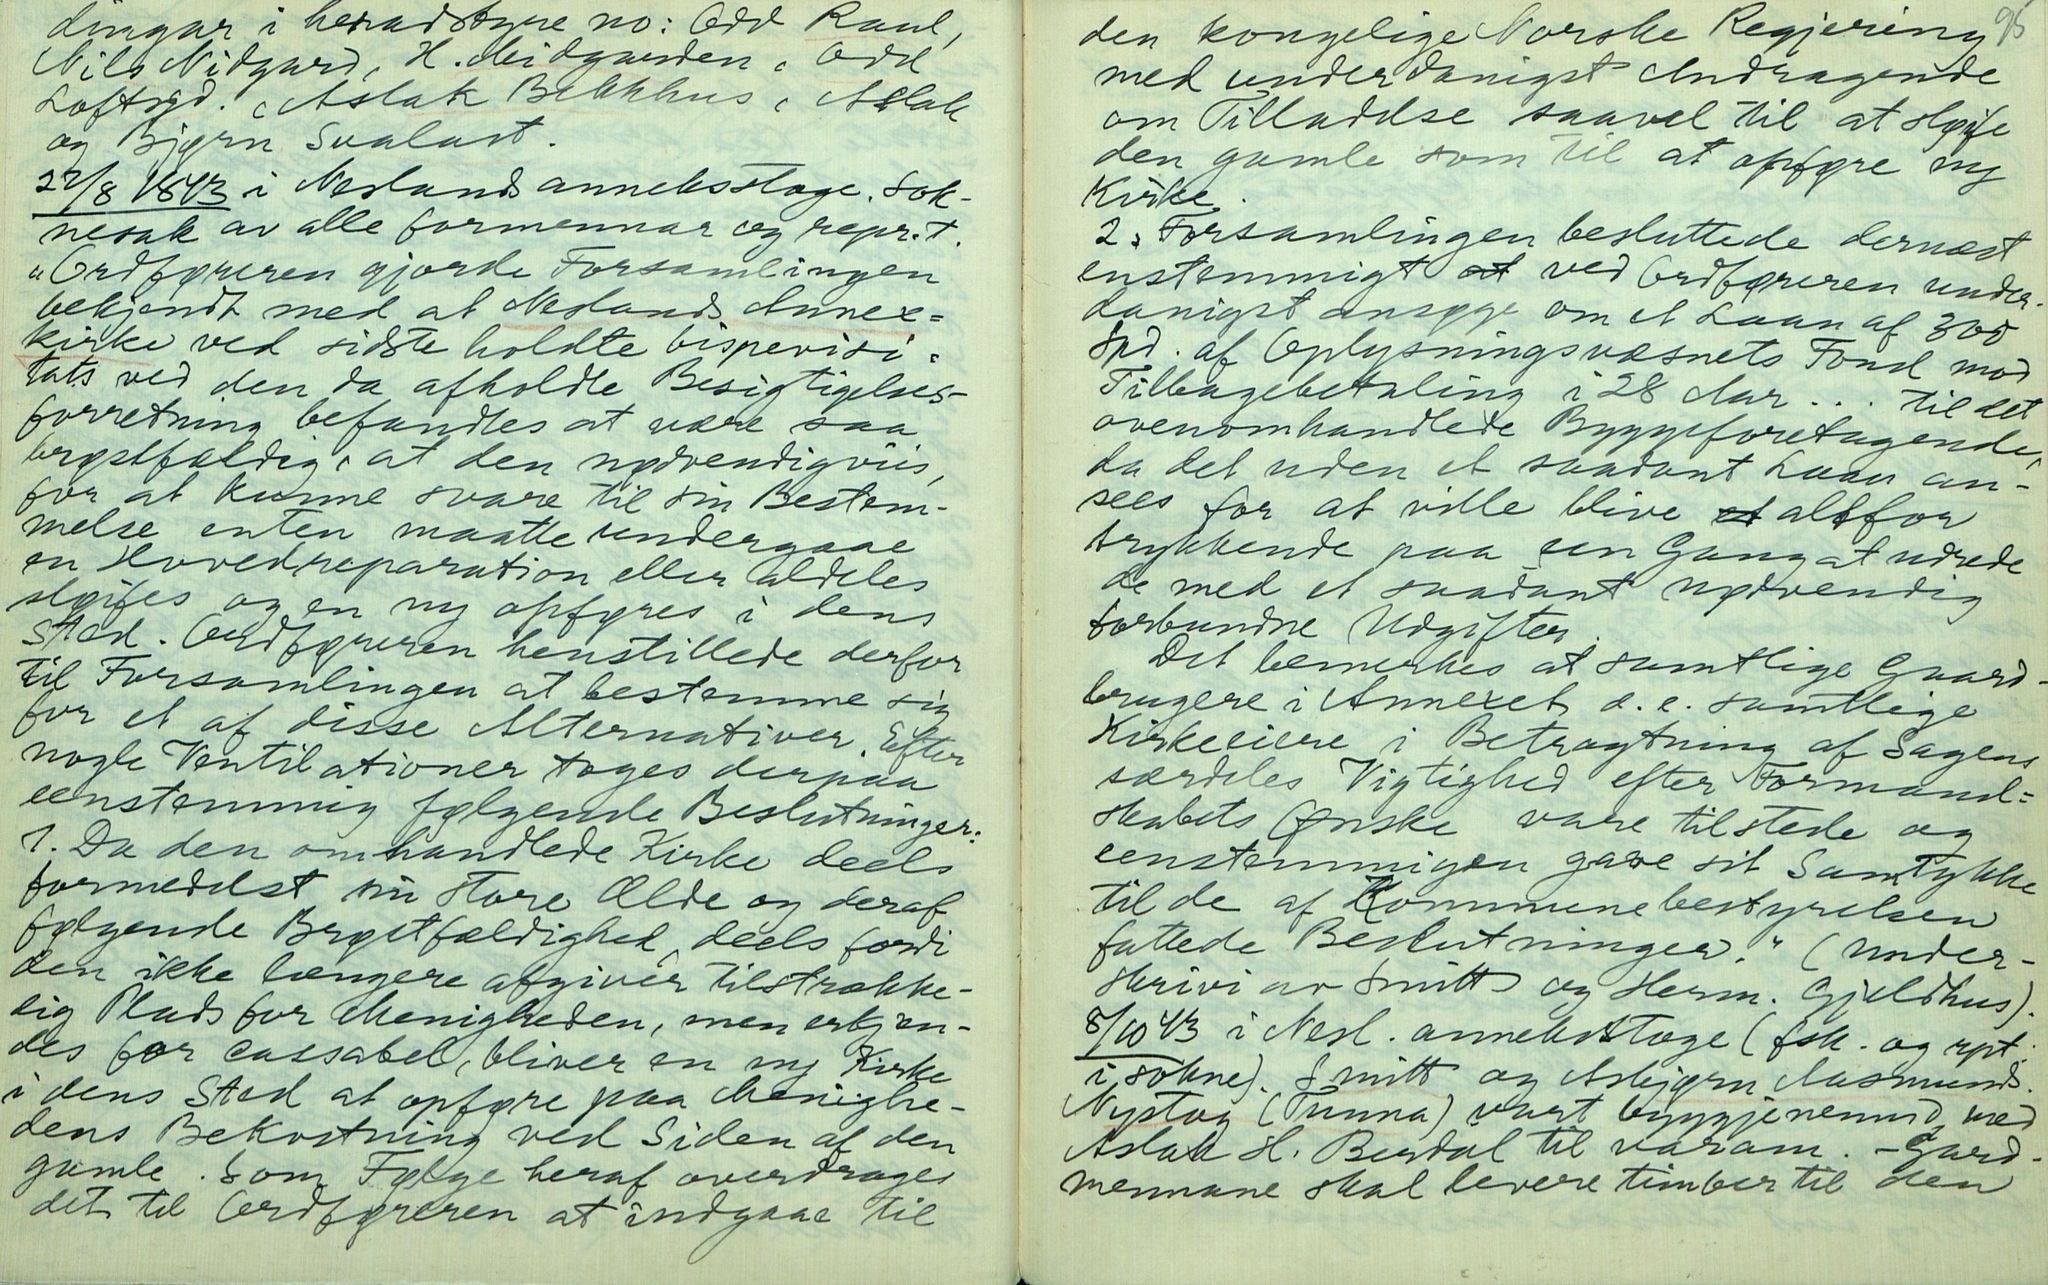 dingar i heradstyre no: Odd Raul,
Nils Nidgard, H. Midgarden, Odd
Loftsgd., Aslak Bekkhus, Aslak
og Bjørn Svalast.
27/8 1843 i Neslands anneksstoge. Sok-
nesak av alle formennar og repr.t.
"Ordføreren gjorde Forsamlingen
bekjendt med at Neslands Annex=
kirke ved sidste holdte bispevisi-
tats ved den da afholdte Besigtigelses-
forretning befandtes at være saa
brøstfældig, at den nødvendigviis,
for at kunne svare til sin Bestem-
melse enten maatte undergaae
en Hovedreparation eller aldeles
sløifes og en ny opføres i dens
Sted. Ordføreren henstillede derfor
til Forsamlingen at bestemme sig
for et af disse Alternativer. Efter
nogle Ventilationer toges derpaa
eenstemmig følgende Beslutninger:
1. Da den omhandlede Kirke deels
formedelst sin store Ælde og deraf
følgende Brøstfældighed, deels fordi
den ikke længere afgiver tilstrække-
lig Plads for Menigheden, men erkjen-
des for cassabel, bliver en ny Kirke
i dens Sted at opføre paa Menighe-
dens Bekostning ved Siden af den
gamle. Som Følge heraf overdrages
det til Ordføreren at indgaae til
95
den kongelige Norske Regjering
med underdanigst Andragende
om Tilladelse saavel til at sløife
den gamle som til at opføre ny
Kirke.
2. Forsamlingen besluttede dernæst
enstemmigt at ved Ordføreren under-
danigst ansøge om et Laan af 300
Spd. af Oplysningsvæsnets Fond mod
Tilbagebetaling i 28 Aar ... til det
ovenomhandlede Byggeforetagende,
da det uden et saadant Laan an-
sees for at ville blive et altfor
trykkende paa een Gang at udrede
de med et saadant nødvendig
forbundne Udgifter.
Det bemerkes at samtlige Gaard-
brugere i Annexet, d. e. samtlige
Kirkeeiere i Betragtning af Sagens
særdeles Vigtighed efter Formand=
skabets Ønske vare tilstede og
eenstemmigen gave sit Samtykke
til de af Kommunebestyrelsen
fattede Beslutninger." (Under-
skrivi av Smitt og Herm. Gjeldhus).
8/10 43 i Nesl. anneksstoge (fsk. og rpt.
i sokne). Smitt og Asbjørn Aasmunds.
Nystog (Tunna) vart byggjenemnd, med
Aslak H. Berdal til varam. - Gard-
mennane skal levere timber til den